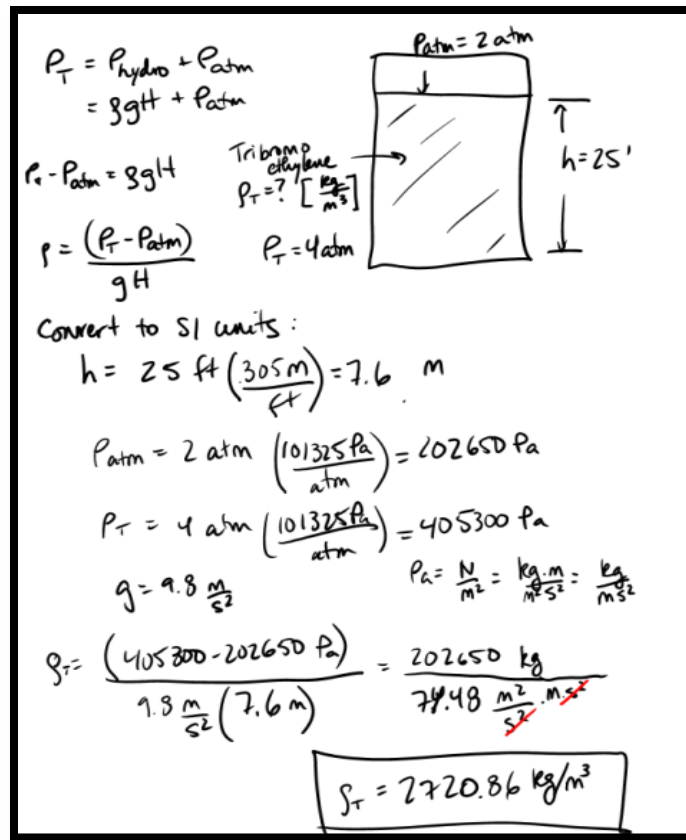 P_T = P_hydro + P_atm
= ρgH + P_atm
P_T - P_atm = ρgH
ρ = (P_T - P_atm) / gH
P_atm = 2 atm
Tribromo
ethylene
ρ_T = ? [kg/m³]
P_T = 4 atm
h = 25'
Convert to SI units:
h = 25 ft (.305 m / ft) = 7.6 m
P_atm = 2 atm (101325 Pa / atm) = 202650 Pa
P_T = 4 atm (101325 Pa / atm) = 405300 Pa
g = 9.8 m/s²
Pa = N/m² = kg·m/m²s² = kg/ms²
ρ_T = (405300 - 202650 Pa) / 9.8 m/s² (7.6 m) = 202650 kg / 74.48 m²/s² · m·s²
ρ_T = 2720.86 kg/m³